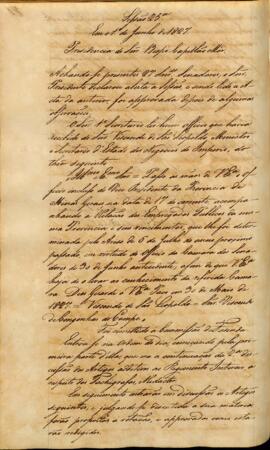 Sessão 25ª
Em o 1º de Junho de 1827.
Presidencia do Snr. Bispo Capellão Mór.
Achando-se presentes 27 Snrs. Senadores, o Snr.
Presidente declarou aberta a Sessão, e sendo lida a Ac-
ta da anterior, foi approvada depois de algumas
observações.
O Snr. 1º Secretario leu hum officio que havia
recebido do Snr. Visconde de São Leopoldo, Ministro
e Secretario d'Estado dos Negocios do Imperio, do
theor seguinte
Passo ás mãos de V. Exª. o of-
ficio incluso do Vice Presidente da Provincia de
Minas Geraes na data de 17 do corrente, acompa-
nhando a Relação dos Empregados Publicos da mes-
ma Provincia, e seus vencimentos, que lhe foi deter-
minada pelo Aviso de 8 de Julho do anno proximo
passado, em virtude do Officio da Camara dos Sena-
dores de 30 de Junho antecedente, a fim de que V. Exª.
haja de o levar ao conhecimento da referida Cama-
ra. Deos Guarde a V. Exª. Paço em 30 de Maio de
1827. Visconde de São Leopoldo. Snr. Visconde
de Congonhas do Campo.
Foi remettido á Commissão de Fazenda.
Entrou-se na ordem do dia, começando pela pri-
meira parte della, que era a continuação da 2ª dis-
cussão dos Artigos
respeito dos Tachigrafos, Redactor
Em seguimento entrarão em discussão os Artigos
seguintes, e julgando-se discutida a sua materia
forão propostos á votação, e approvados como esta-
vão redigidos.